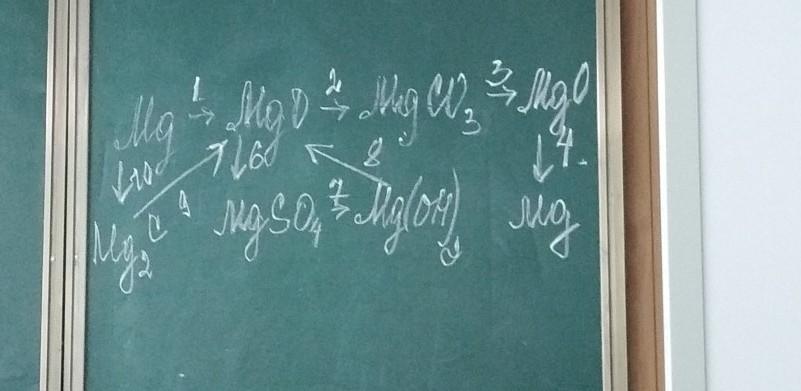 Mg 1→ MgO 2→ MgCO₃ 3→ MgO
↓10 ↗9 ↓6 ↖8 ↓4.
Mg₂C MgSO₄ 7→ Mg(OH)₂ Mg